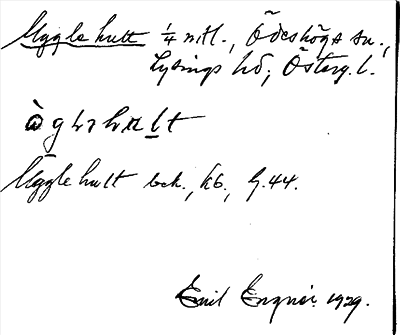 Ugglehult ¼ mtl., Ödeshögs sn.,
Lysings hd, Österg. l.
Ugglehult bek., kb., G.44.
Emil Engnér. 1929.